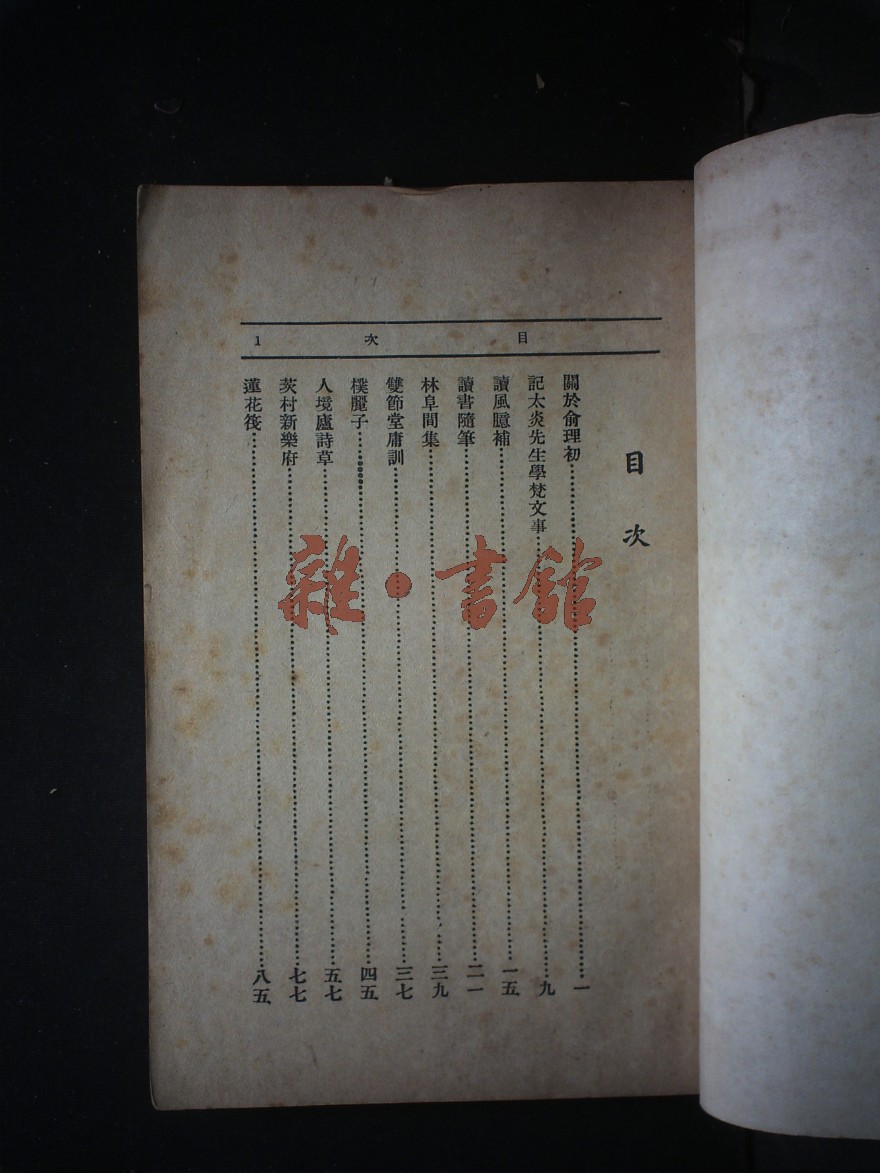 目次
1
目次
關於俞理初……一
記太炎先生學梵文事……九
讀風臆補……一五
讀書隨筆……二一
林阜間集……三九
雙節堂庸訓……三七
樸麗子……四五
人境廬詩草……五七
茨村新樂府……七七
蓮花筏……八五
雜·書館